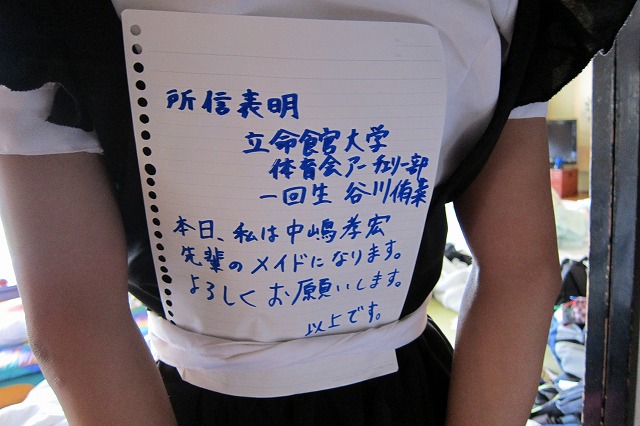 所信表明
立命館大学
体育会アーチェリー部
一回生 谷川侑菜
本日、私は中嶋孝宏
先輩のメイドになります。
よろしくお願いします。
以上です。